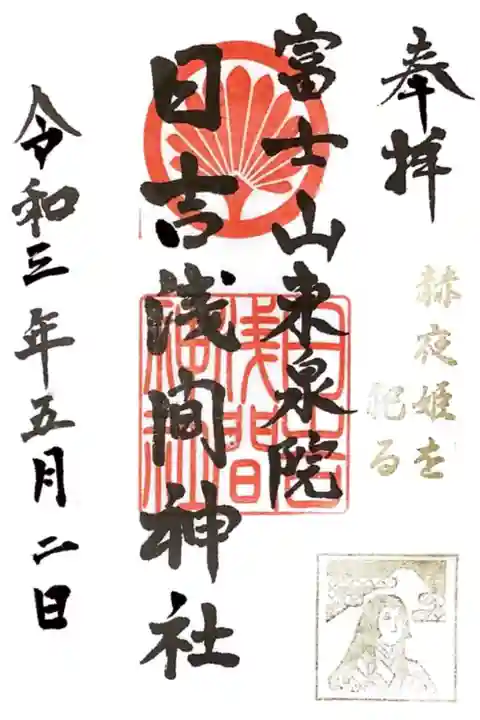 奉拝
赫夜姫を
祀る
富士山東泉院
日吉浅間神社
日吉
浅間
神社
令和三年五月二日